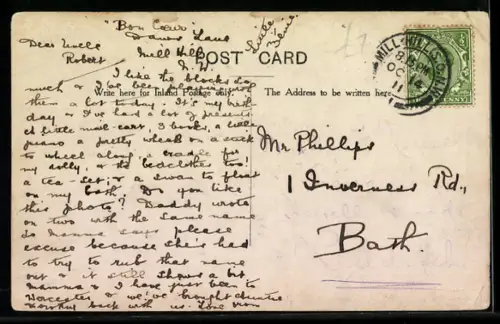 "Bon Coeur"
Dawes Lane
Mill Hill
N.W.
Little
Dear Uncle
Robert
POST CARD
Write here for Inland Postage only.
The Address to be written here.
I like the blocks so
much & I've been playing with
them a lot to-day. It's my birth
day & I've had a lot of presents
A little mail-cart, 3 books, a little
piano a pretty wheel on a stick
to wheel along, a cradle for
my dolly, & the bedclothes too!
a tea-set, & a swan to float
on my bath. Do you like
this photo? Daddy wrote
on two with the same name
So Mamma says please
excuse because she's had
to try to rub that name
out & it still shows a bit
Mamma & I have just been to
Worcester & we've brought Auntie
back with us. Love from
Mr Phillips
1 Inverness Rd.,
Bath.
MILL-HILL S.O.
8 PM
OC 14
11
PENNY
£1